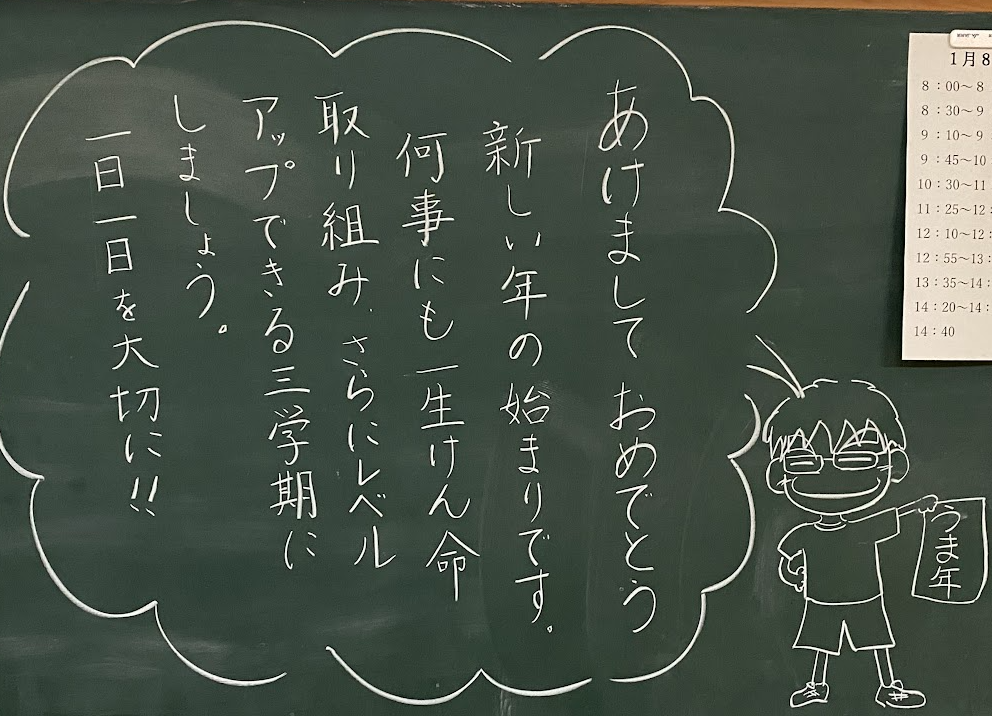 あけまして おめでとう
新しい年の始まりです。
何事にも一生けん命
取り組み、さらにレベル
アップできる三学期に
しましょう。
一日一日を大切に!!
うま年
1月8
8:00～8
8:30～9
9:10～9
9:45～10
10:30～11
11:25～12:
12:10～12:
12:55～13:
13:35～14:
14:20～14:
14:40